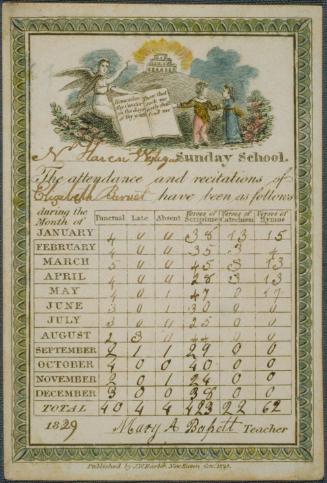 Remember those that
the Creator seek me
in the days early that
of thy youth find me
N. Haven Sunday School.
The attendance and recitations of
Elizabeth have been as follows
during the Month of Punctual Late Absent Verses of Scripture Verses of Catechism Verses of Hymns
JANUARY 4 0 0 38 13 15
FEBRUARY 4 0 0 35 3
MARCH 5 0 0 45 3 13
APRIL 4 0 0 28 3 13
MAY 4 0 1 47 0 17
JUNE 3 0 1 30 0 0
JULY 3 0 0 25 0 0
AUGUST 2 3 0 44 0 0
SEPTEMBER 2 1 1 29 0 0
OCTOBER 4 0 0 40 0 0
NOVEMBER 2 0 1 24 0 0
DECEMBER 3 0 0 38 0 0
TOTAL 40 4 4 423 22 62
1829 Mary A Teacher
Published by J.W. Barber New Haven Con.